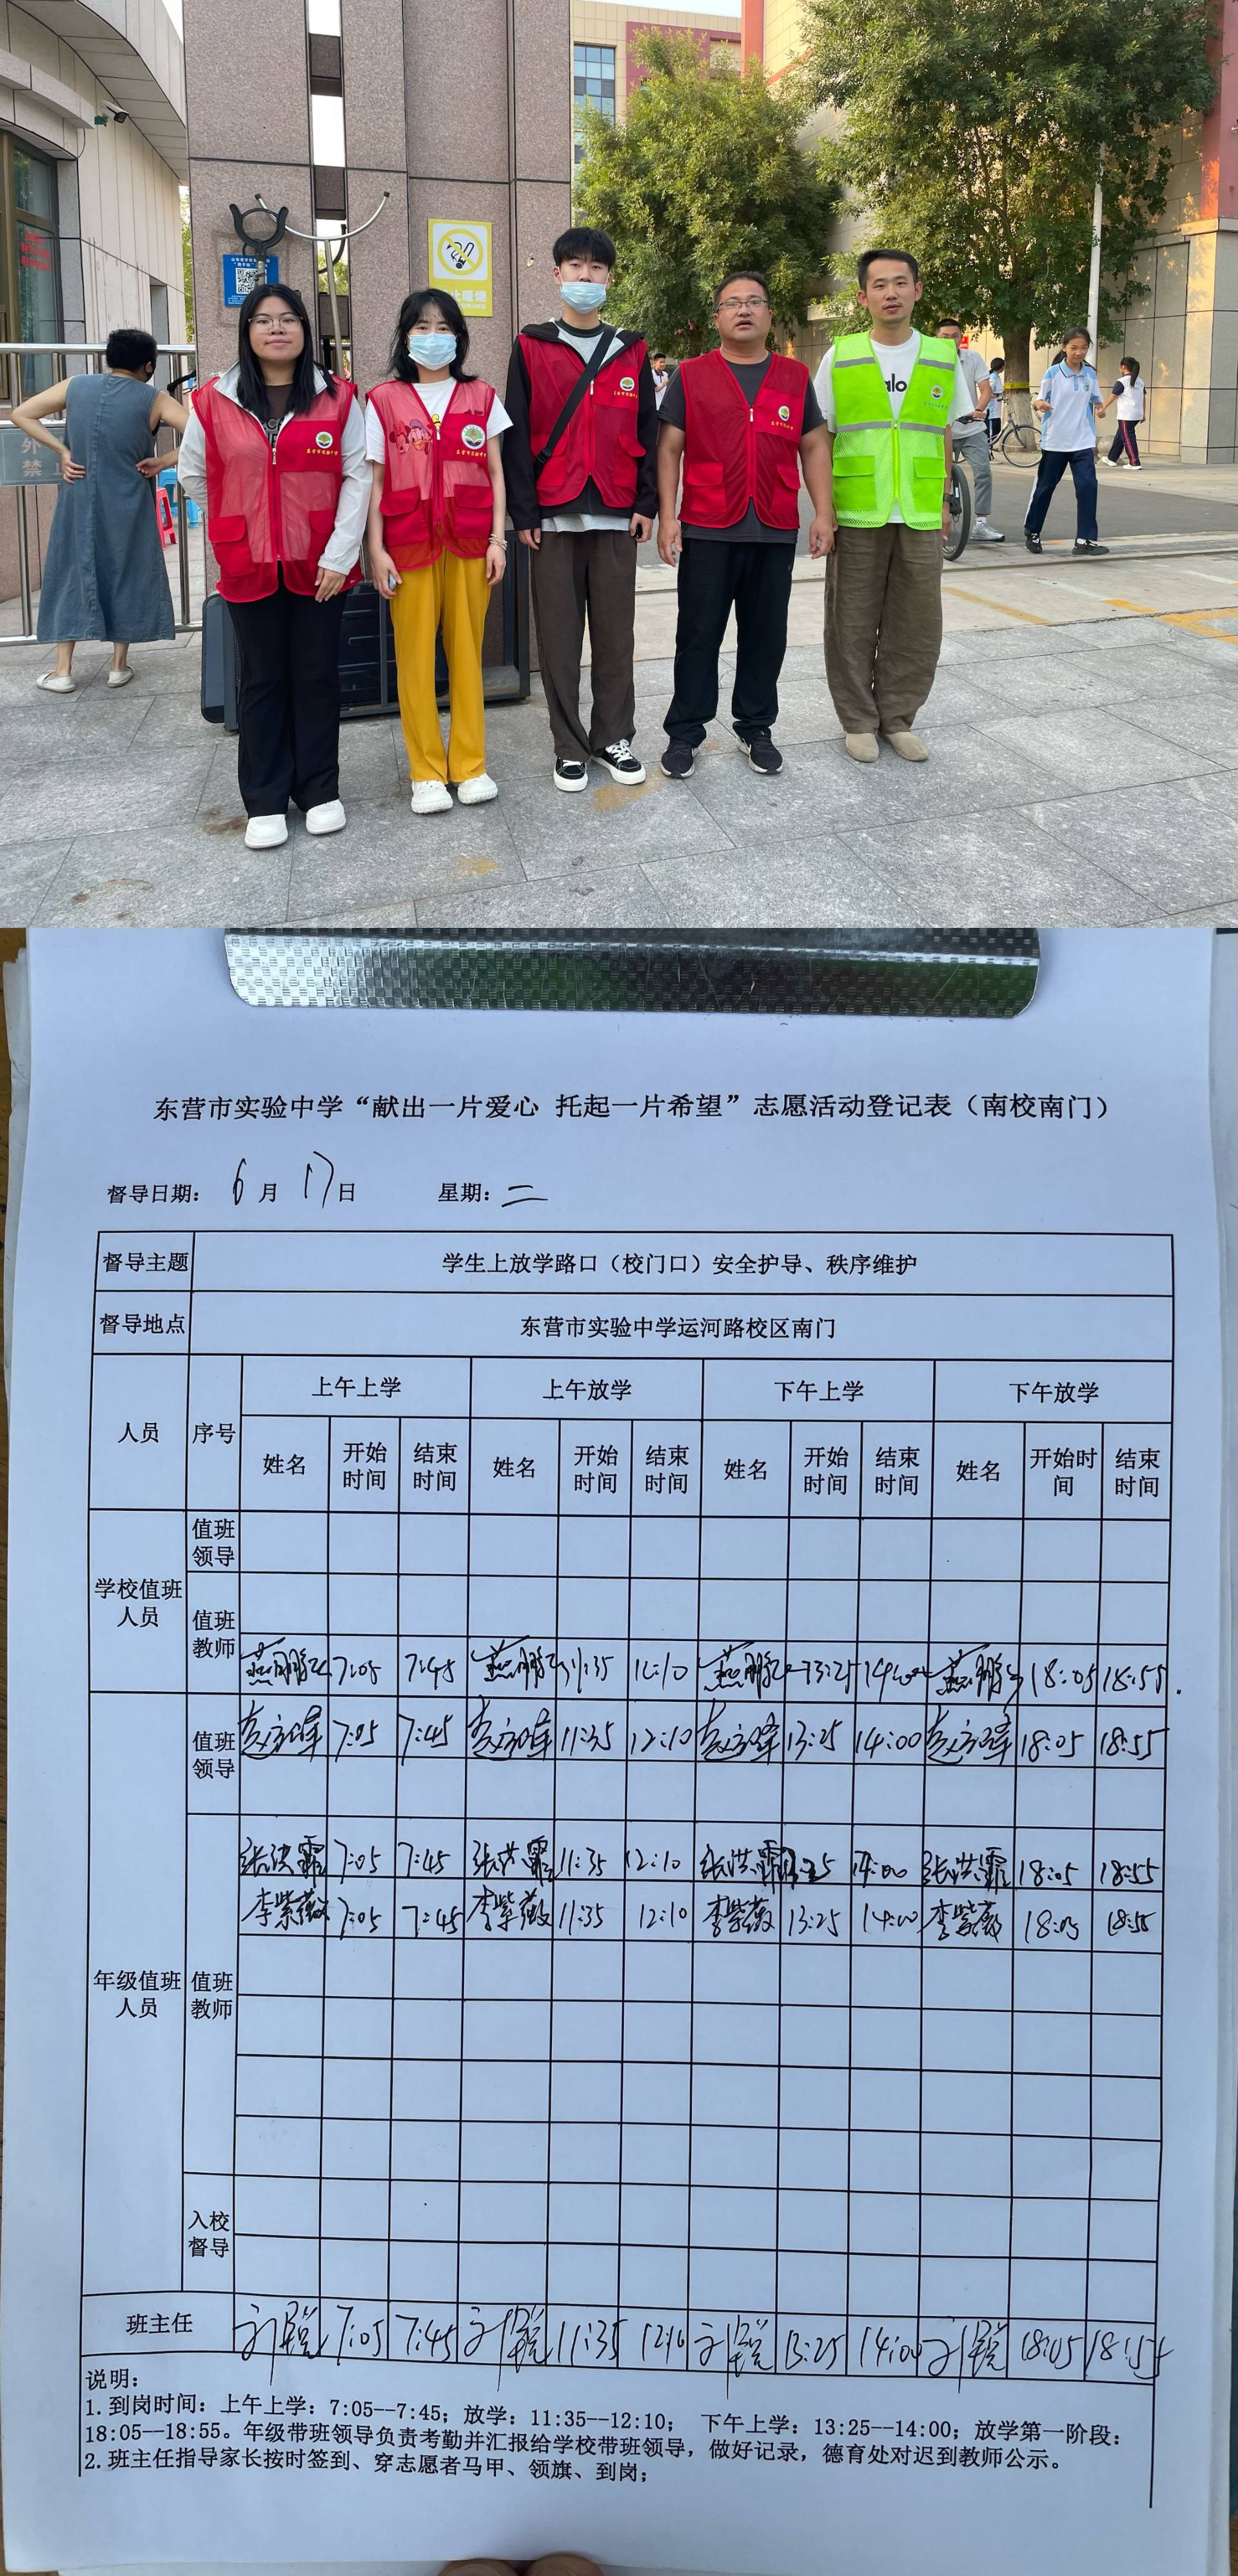 外
禁 止
禁止吸烟
NO SMOKING
东营市实验中学
东营市实验中学
东营市实验中学
东营市实验中学
alo
东营市实验中学“献出一片爱心 托起一片希望”志愿活动登记表（南校南门）
督导日期： 6 月 17 日 星期：二
督导主题 学生上放学路口（校门口）安全护导、秩序维护
督导地点 东营市实验中学运河路校区南门
人员 序号 上午上学 上午放学 下午上学 下午放学
姓名 开始时间 结束时间 姓名 开始时间 结束时间 姓名 开始时间 结束时间 姓名 开始时间 结束时间
学校值班人员 值班领导
值班教师
7:05 7:45 11:35 12:10 13:25 14:00 18:05 18:55
年级值班人员 值班领导 7:05 7:45 11:35 12:10 13:25 14:00 18:05 18:55
值班教师
张洪霏 7:05 7:45 张洪霏 11:35 12:10 张洪霏 14:00 张洪霏 18:05 18:55
李紫薇 7:05 7:45 李紫薇 11:35 12:10 李紫薇 13:25 14:00 李紫薇 18:05 18:55
入校督导
班主任 7:05 7:45 11:35 12:10 13:25 14:00 18:05 18:55
说明：
1.到岗时间：上午上学：7:05--7:45；放学：11:35--12:10； 下午上学：13:25--14:00；放学第一阶段：
18:05--18:55。年级带班领导负责考勤并汇报给学校带班领导，做好记录，德育处对迟到教师公示。
2.班主任指导家长按时签到、穿志愿者马甲、领旗、到岗；